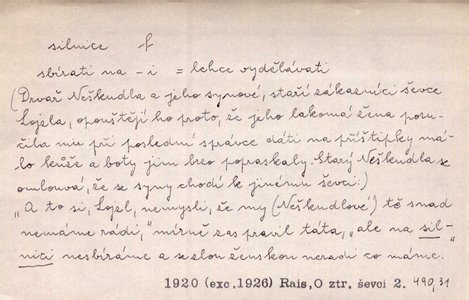 silnice f
sbírati na -i = lehce vydělávati
(Drvař Neškudla a jeho synové, staří zákazníci ševce
Lojzla, opouštějí ho proto, že jeho lakomá žena poru-
čila mu při poslední správce dáti na příštipky má-
lo kůže a boty jim brzo popraskaly. Starý Neškudla se
omlouvá, že se syny chodí k jinému ševci:)
„A to si, Lojzl, nemysli, že my (Neškudlové) tě snad
nemáme rádi," mírně zas pravil táta, „ale na sil-
nici nesbíráme a se zlou ženskou neradi co máme."
1920 (exc. 1926) Rais, O ztr. ševci 2. 490,31